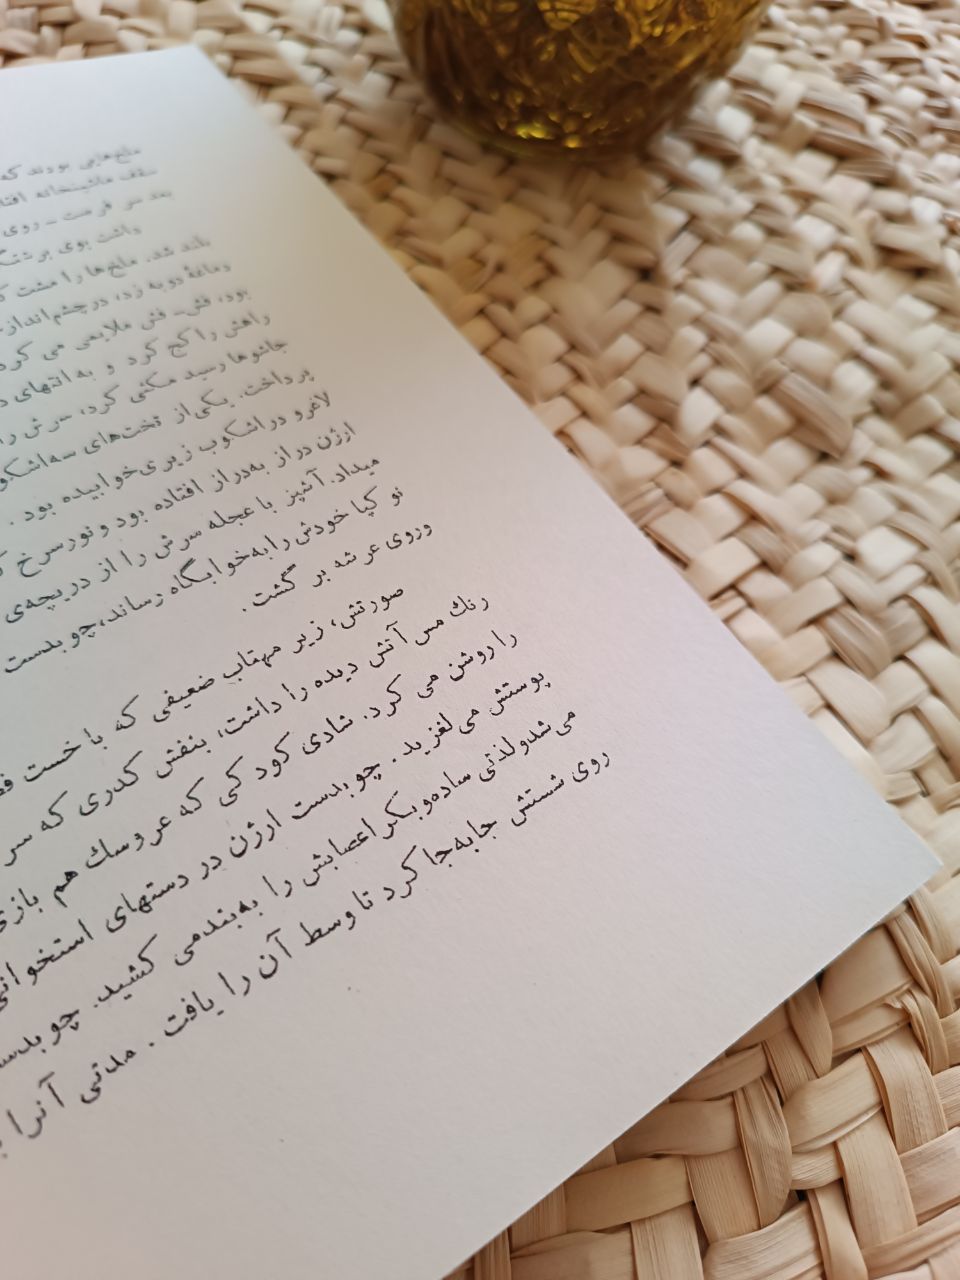 ملخ‌هایی بودند که
سقف ماشینخانه افتا
بعد سر فرصت ـ روی
داشت بوی برشتگ
بلند شد. ملخ‌ها را مشت ک
دماغهٔ دوبه زد، در چشم‌انداز
بود، فش ـ فش ملایمی می کرد
راهش را کج کرد و به انتهای د
جاشوها رسید مکثی کرد، سرش را
پرداخت. یکی از تخت‌های سه‌اشکو
لاغرو در اشکوب زیری خوابیده بود .
ارژن دراز به‌دراز افتاده بود و نور سرخ ک
میداد. آشپز با عجله سرش را از دریچه‌ی
نو کپا خودش را به‌خوابگاه رساند، چوبدست
وروی عرشه بر گشت .
صورتش، زیر مهتاب ضعیفی که با خست فض
رنك مس آتش دیده را داشت، بنفش کدری که سر
را روشن می کرد. شادی کود کی که عروسك هم بازی
پوستش می لغزید . چوبدست ارژن در دستهای استخوانی
می‌شدو لذتی ساده‌وبکر اعصابش را به‌بندمی کشید. چوبدس
روی شستش جابه‌جا کرد تا وسط آن را یافت . مدتی آنرا